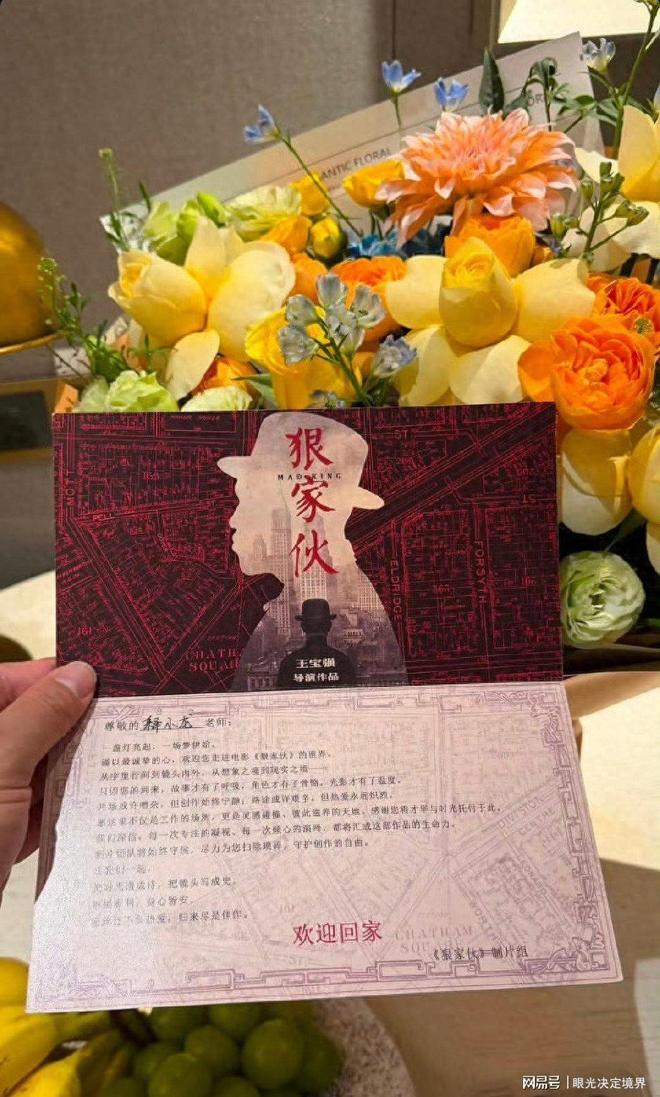 ANTIC FLORAL
狠
MAD KING
家
伙
ST
ELDRIDGE
FORSYTH
ST
165
161
CHATHAM
SQUARE
王宝强
导演作品
尊敬的 释小龙 老师：
盏灯亮起，一场梦伊始。
谨以最诚挚的心，欢迎您走进电影《狠家伙》的世界。
从字里行间到镜头内外，从想象之境到现实之境
只因您的到来，故事才有了呼吸，角色才有了骨骼，光影才有了温度。
片场或许嘈杂，但创作始终宁静；路途或许艰辛，但热爱永远炽烈。
愿这里不仅是工作的场所，更是灵感碰撞、彼此滋养的天地。感谢您将才华与时光托付于此。
我们深信，每一次专注的凝视、每一次倾心的演绎，都将汇成这部作品的生命力。
制片团队将始终守候，尽力为您扫除琐碎，守护创作的自由。
让我们一起，
把镜头写成史。
身心皆安。
归来尽是佳作。
欢迎回家
CHATHAM
《狠家伙》制片组
网易号 | 眼光决定境界